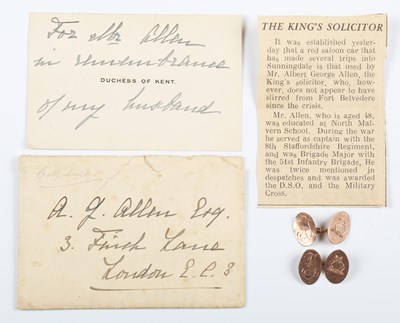 For Mr Allen
in remembrance
DUCHESS OF KENT.
of my husband
A. G. Allen Esq.
3. Finch Lane
London E.C.3
THE KING'S SOLICITOR
It was established yester-
day that a red saloon car that
has made several trips into
Sunningdale is that used by
Mr. Albert George Allen, the
King's solicitor, who, how-
ever, does not appear to have
stirred from Fort Belvedere
since the crisis.
Mr. Allen, who is aged 48,
was educated at North Mal-
vern School. During the war
he served as captain with the
8th Staffordshire Regiment,
and was Brigade Major with
the 51st Infantry Brigade. He
was twice mentioned in
despatches and was awarded
the D.S.O. and the Military
Cross.